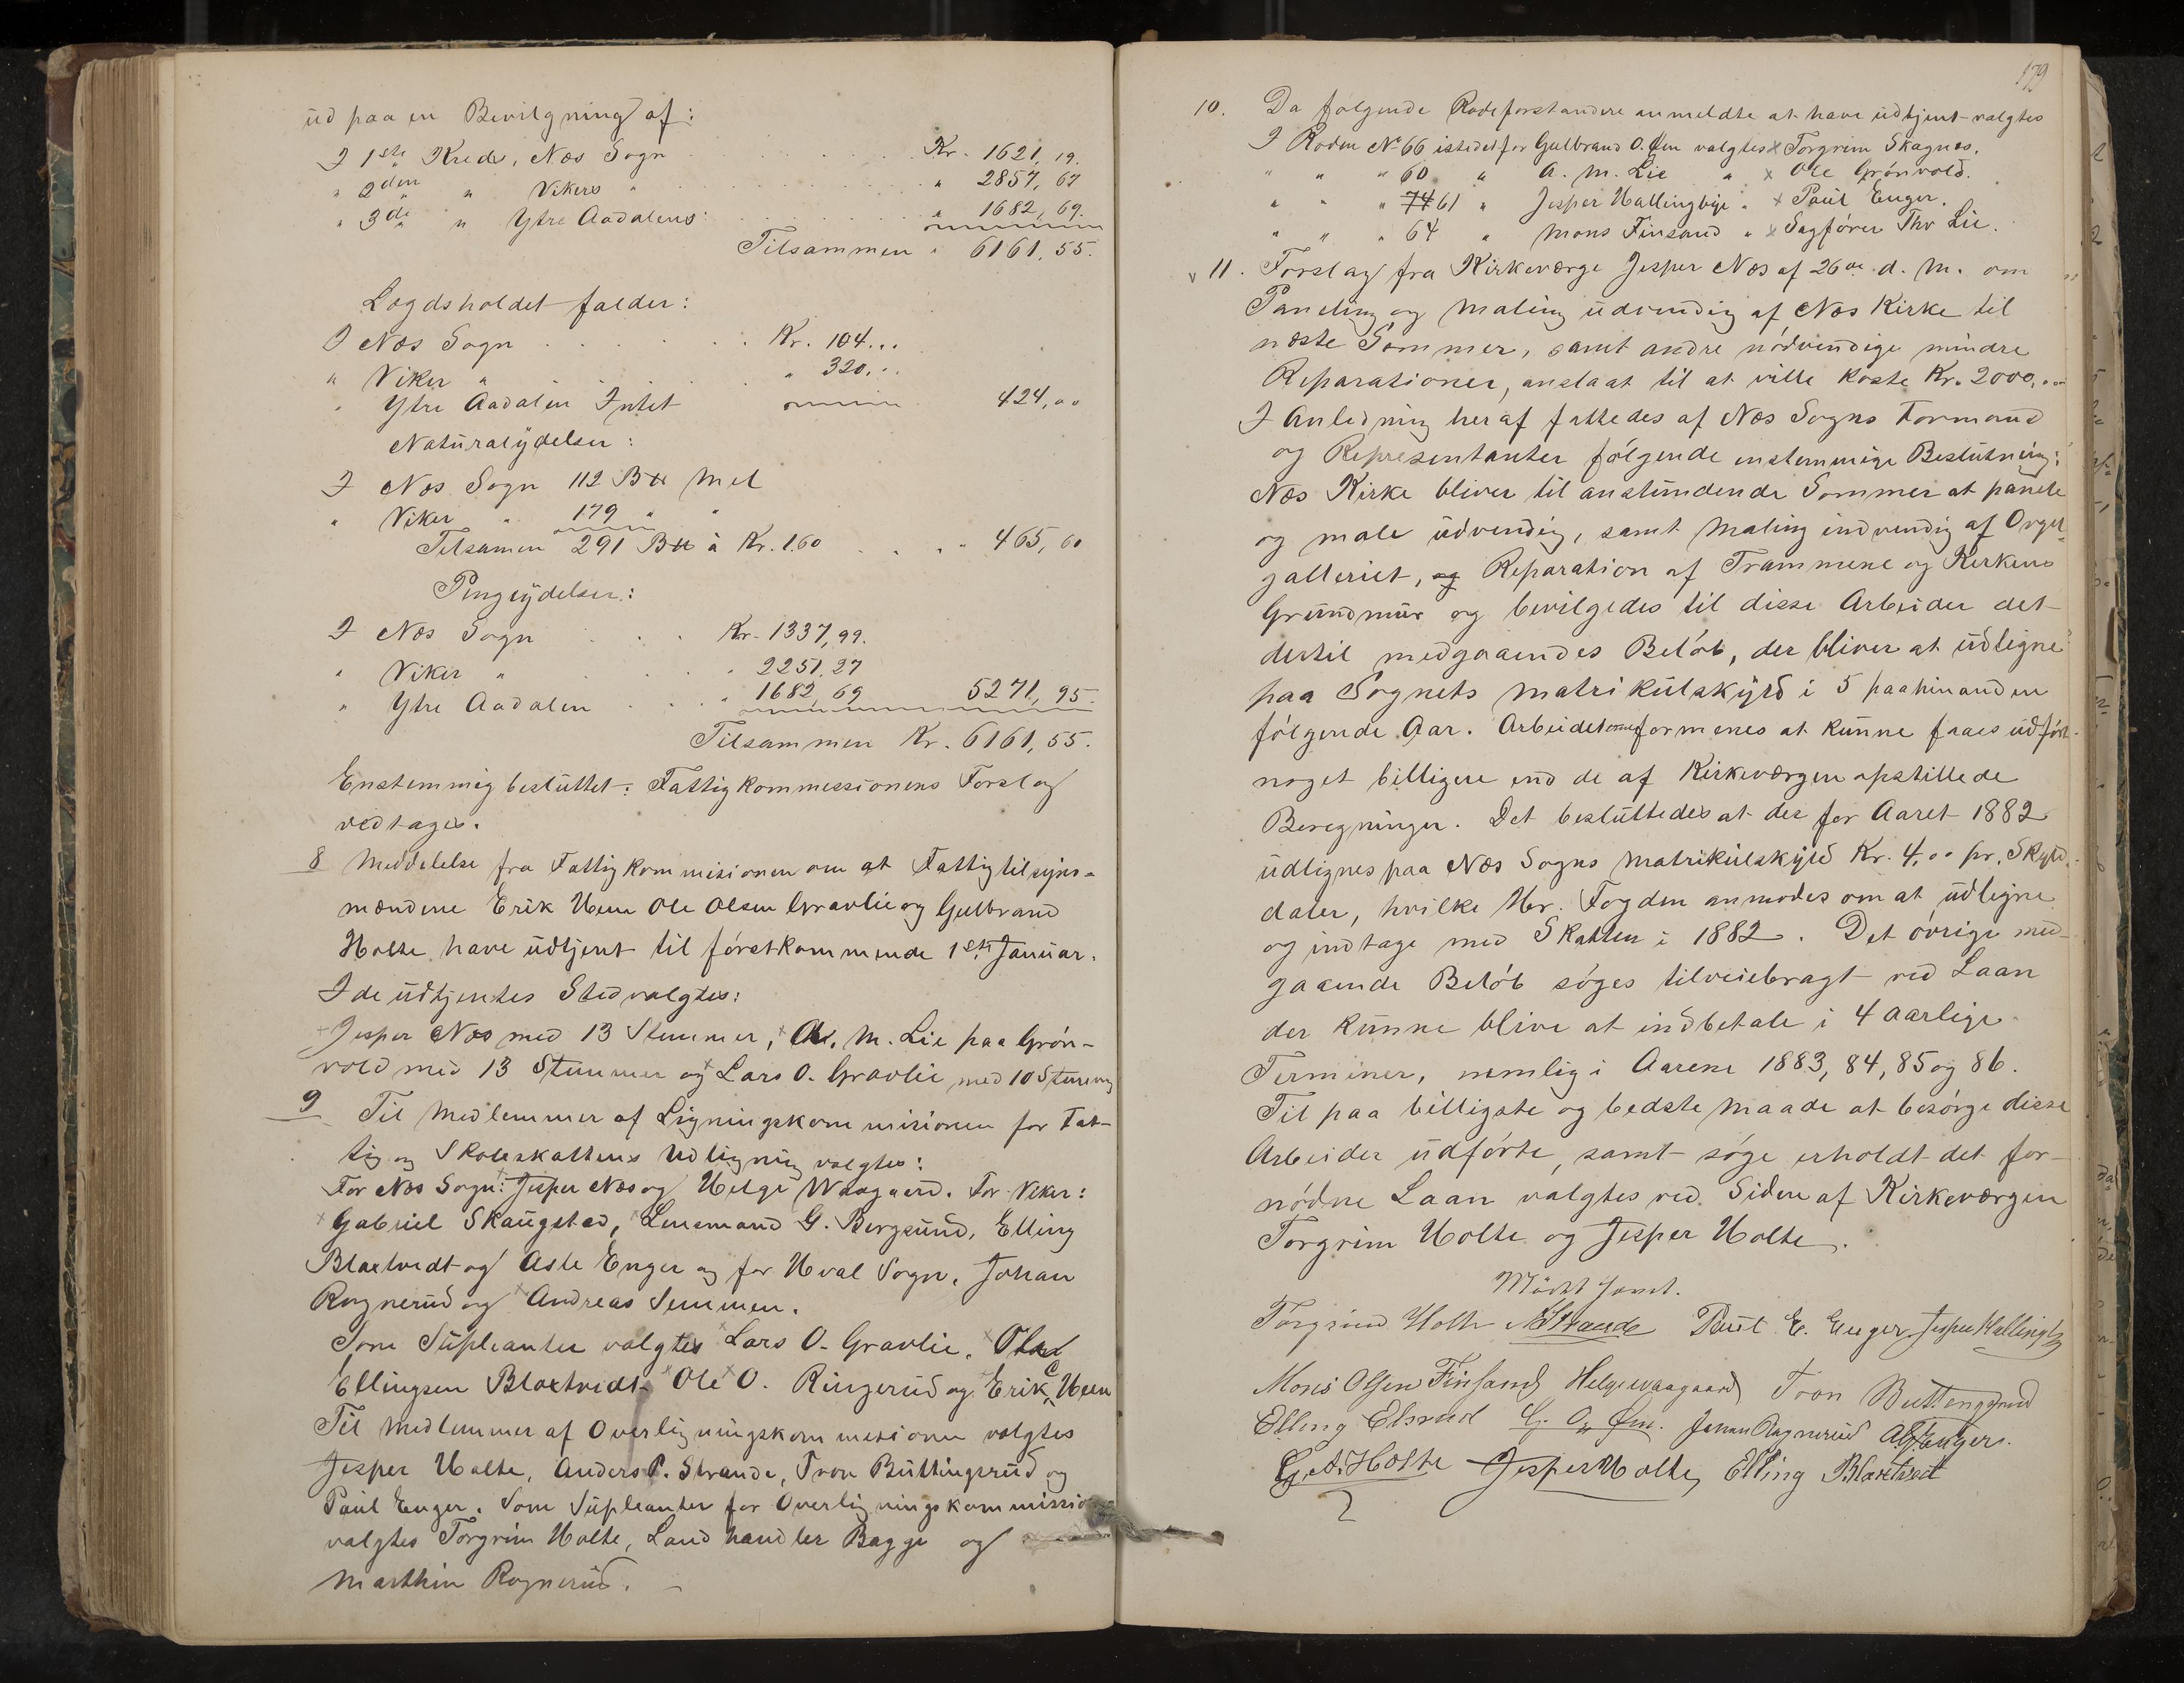 ud paa en Bevilgning af:
I 1ste Kreds, Næs Sogn . . . . Kr. 1621,19.
" 2den " Vikers " . . . . " 2857,67
" 3die " Ytre Aadalens: . . . . " 1682,69.
Tilsammen " 6161,55.
Lægdsholdet falder:
I Næs Sogn . . . . Kr. 104...
" Viker " . . . " 320...
" Ytre Aadalen Intet 424,00
Naturalydelser:
I Næs Sogn 112 B℔ Mel
" Viker " 179 " "
Tilsamen 291 B℔ à Kr. 1.60 . . . . 465,60
Pengeydelser:
I Næs Sogn . . . Kr. 1337,99.
" Viker " . . . " 2251,27
" Ytre Aadalen . . . " 1682,69 5271,95.
Tilsammen Kr. 6161,55.
Enstemmig besluttet: Fattigkommessionens Forslag
vedtages.
8 Meddelelse fra Fattigkommisionen om at Fattigtilsyns-
mændene Erik Ueen Ole Olsen Gravlie og Gulbrand
Holte have udtjent til førstkommende 1ste Januar.
I de udtjentes Sted valgtes:
Jesper Næs med 13 Stemmer, A. M. Lie paa Grøn-
vold med 13 Stemmer og Lars O. Gravlie med 10 Stemmer
9 Til Medlemmer af Ligningskommisionen for Fat-
tig og Skoleskattens Udligning valgtes:
For Næs Sogn: Jesper Næs og Helge Waagaard. For Viker:
Gabriel Skaugstad, Lensmand G. Bergsund, Elling
Blaxtvedt og Asle Enger og for Hval Sogn, Johan
Rognerud og Andreas Semmen.
Som Supleanter valgtes Lars O. Gravlie,
Ellingsen Blaxtvedt Ole O. Ringerud og Erik C Ueen
Til Medlemmer af Overligningskommesionen valgtes
Jesper Holte, Anders P. Strande, Tron Buttingsrud og
Paul Enger. Som Supleanter for Overligningskommission
valgtes Torgrim Holte, Landhandler Bagge og
Marthin Rognerud.
179
10. Da følgende Rodeforstandere anmeldte at have udtjent valgtes
I Roden No 66 istedetfor Gulbrand O. Øen valgtes x Torgrim Skagnæs.
" " " 60 " A. M. Lie " x Ole Grønvold.
" " " 74 61 " Jesper Hallingbye " x Paul Enger.
" " " 64 " Mons Finsand " x Sagfører Thv Lie.
v 11. Forslag fra Kirkeværge Jesper Næs af 26de d. M. om
Paneling og Maling udvendig af Næs Kirke til
næste Sommer, samt andre nødvendige mindre
Reparationer, anslaat til at ville koste Kr. 2000,00
I Anledning heraf fattedes af Næs Sogns Formand
og Representanter følgende enstemmige Beslutning:
Næs Kirke bliver til anstundende Sommer at panele
og male udvendig, samt Maling indvendig af Orgel-
galleriet, og Reparation af Trammene og Kirkens
Grundmur og bevilgedes til disse Arbeider det
dertil medgaaendes Beløb, der bliver at udligne
paa Sognets Matrikulskyld i 5 paahinanden
følgende Aar. Arbeidet formenes at kunne faaes udført
noget billigere end de af Kirkeværgen opstillede
Beregninger. Det besluttedes at der for Aaret 1882
udlignes paa Næs Sogns Matrikulskyld Kr. 4,00 pr. Skyld-
daler, hvilke Hr. Fogden anmodes om at udligne
og indtage med Skatten i 1882. Det øvrige med-
gaaende Beløb søges tilveiebragt ved Laan
der kunne blive at indbetale i 4 aarlige
Terminer, nemlig i Aarene 1883, 84, 85 og 86.
Til paa billigste og bedste Maade at besørge disse
Arbeider udførte, samt søge erholdt det for-
nødne Laan valgtes ved Siden af Kirkeværgen
Torgrim Holte og Jesper Holte.
Mødet hævet.
Torgrim Holte AStrande Paul E. Enger Jesper Hallingby
Mons Olsen Finsand Helge Waagaard Tron Buttingsrud
Elling Elsrud G. O. Øen. Johan Rognerud AGEnger.
G. A. Holte Jesper Holte, Elling Blaxtvedt